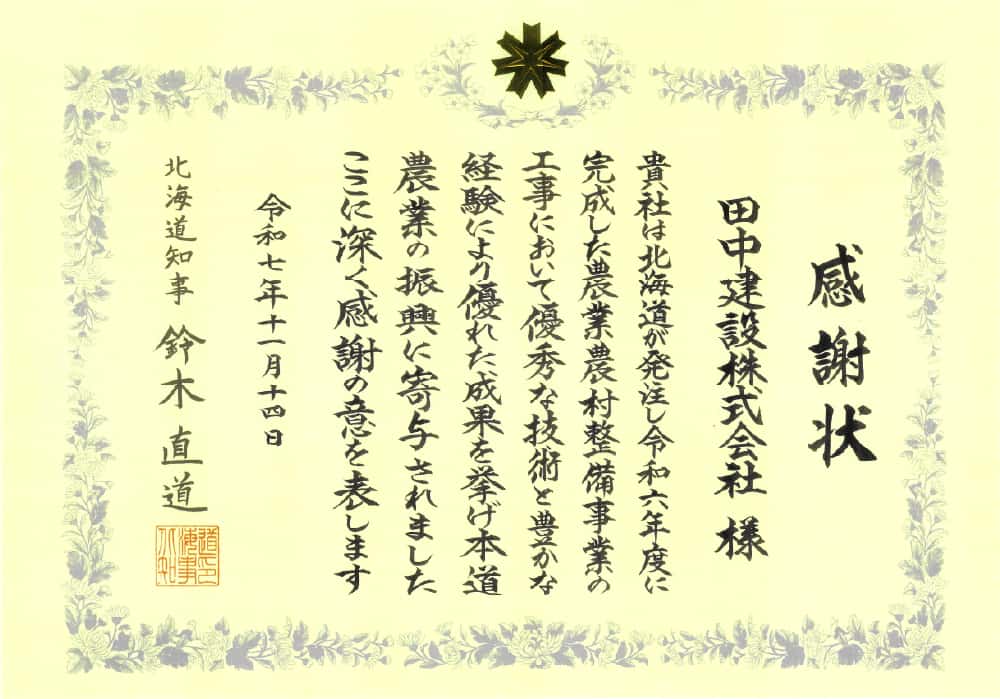 感謝状
田中建設株式会社 様
貴社は北海道が発注し令和六年度に
完成した農業農村整備事業の
工事において優秀な技術と豊かな
経験により優れた成果を挙げ本道
農業の振興に寄与されました
ここに深く感謝の意を表します
令和七年十一月十四日
北海道知事 鈴木直道